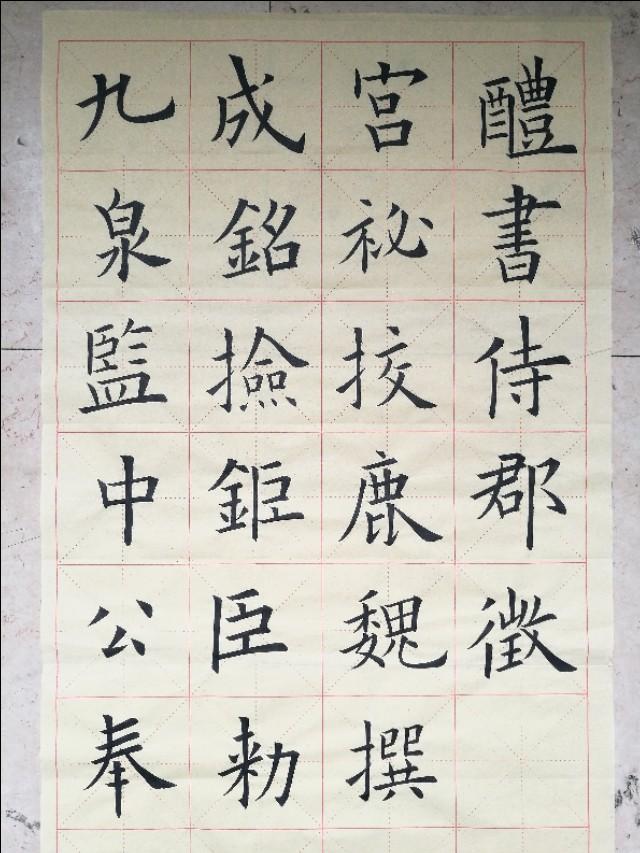 九成宮醴
泉銘祕書
監撿挍侍
中鉅鹿郡
公臣魏徵
奉勑撰